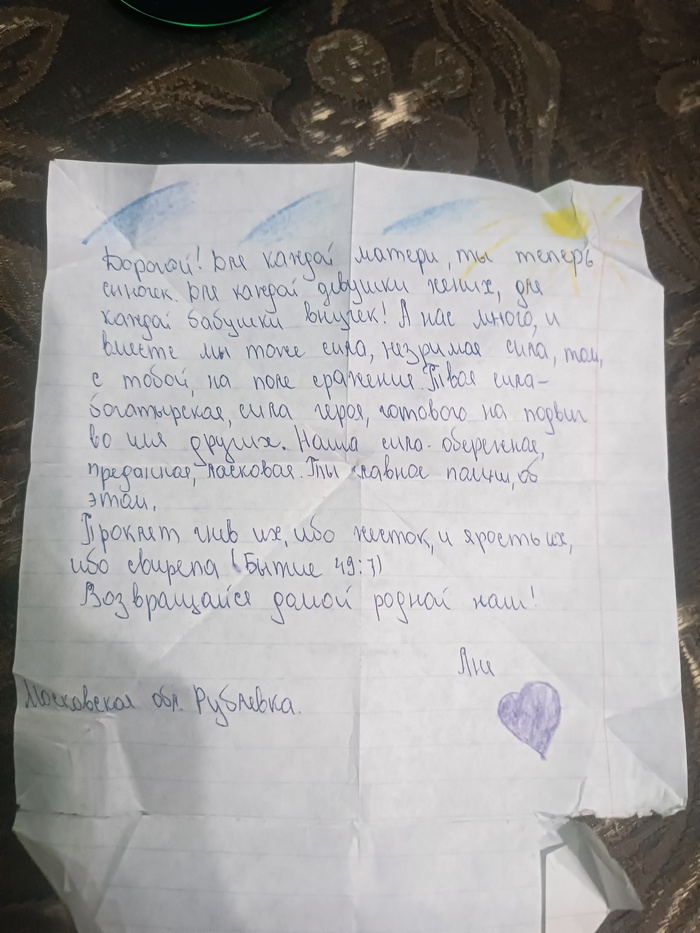 Дорогой! Для каждой матери, ты теперь
сыночек. Для каждой девушки жених, для
каждой бабушки внучек! А нас много, и
вместе мы тоже сила, незримая сила, там,
с тобой, на поле сражения. Твоя сила-
богатырская, сила героя, готового на подвиг
во имя других. Наша сила- обережная,
преданная, ласковая. Ты главное помни, об
этом.
Проклят гнев их, ибо жесток, и ярость их,
ибо свирепа (Бытие 49:7)
Возвращайся домой родной наш!
Московская обл. Рублевка.